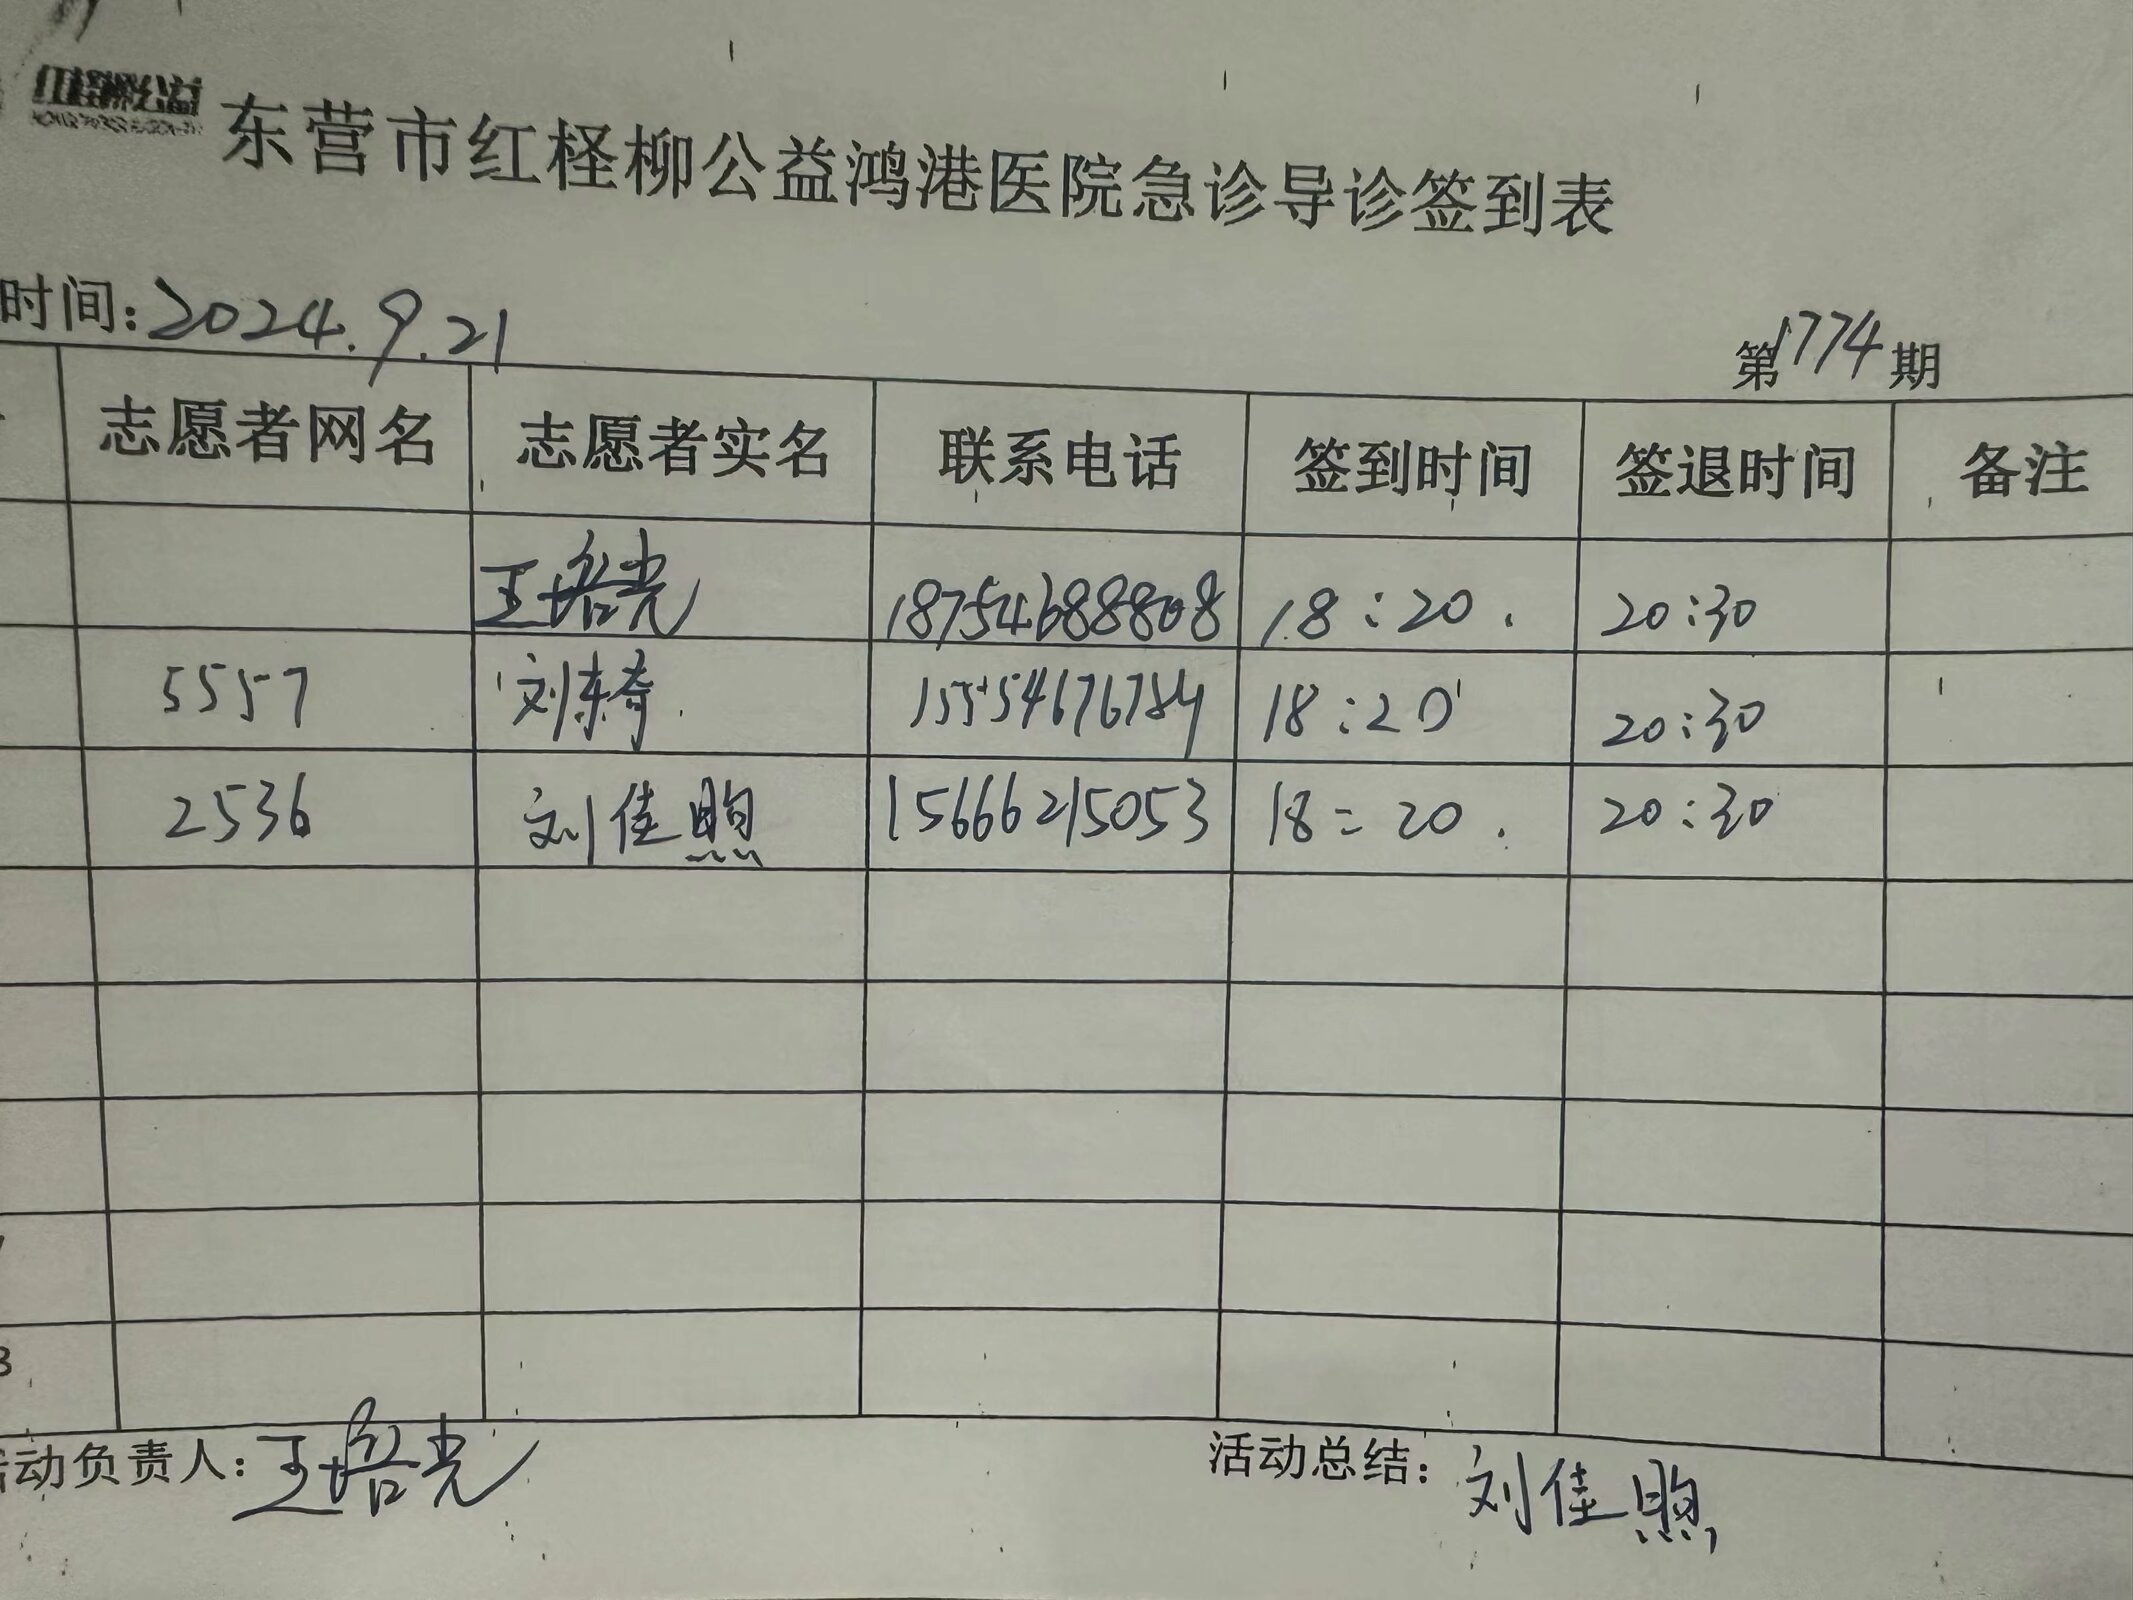 红柽柳公益
东营市红柽柳公益鸿港医院急诊导诊签到表
时间:2024.9.21
第1774期
志愿者网名 志愿者实名 联系电话 签到时间 签退时间 备注
王培光 18754688808 18:20. 20:30
5557 刘东奇 15554676784 18:20 20:30
2536 刘佳煦 15666215053 18:20. 20:30
活动负责人:王培光 活动总结:刘佳煦